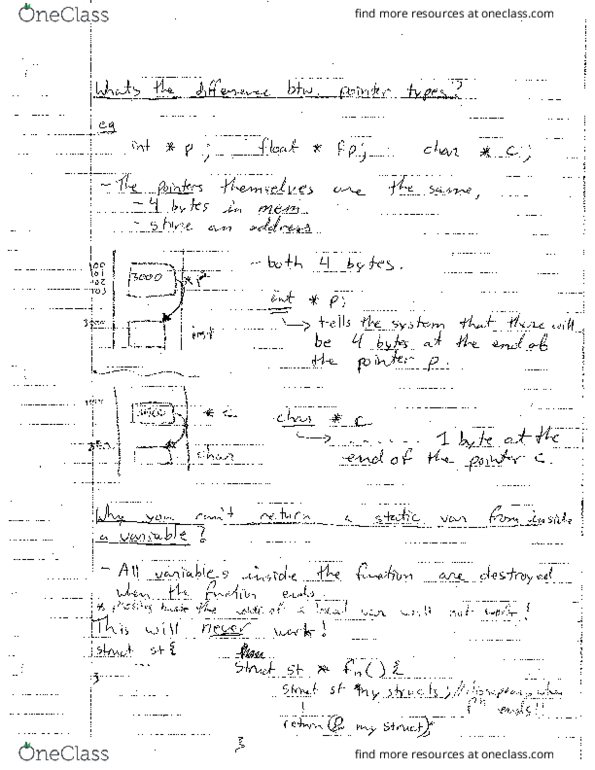 OneClass
find more resources at oneclass.com
Whats the difference btw. pointer types?
eg
int * p ; float * fp; char * c ;
- The pointers themselves are the same,
- 4 bytes in mem
- store an address
- both 4 bytes.
3000 * p
int * p;
→ tells the system that there will
be 4 bytes at the end of
the pointer p.
int
* c
char * c
→ ....... 1 byte at the
end of the pointer c.
char
Why you can't return a static var from inside
a variable?
- All variables inside the function are destroyed
when the function ends
* the of a local var will not work!
This will never work!
struct st {
struct st * fn() {
3
struct st my structs; // when
fn ends!!
return (& my struct);
3
OneClass
find more resources at oneclass.com